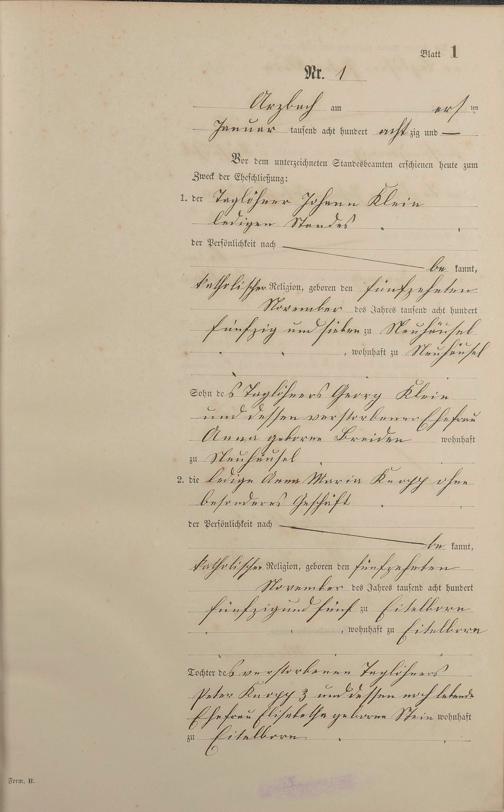 Blatt 1
Nr. 1
Arzbach am ersten
Januar tausend acht hundert achtzig und —
Vor dem unterzeichneten Standesbeamten erschienen heute zum
Zweck der Eheschließung:
1. der Taglöhner Johann Klein
ledigen Standes
der Persönlichkeit nach
bekannt,
katholischer Religion, geboren den fünfzehnten
November des Jahres tausend acht hundert
fünfzig und sieben zu Neuhäusel
, wohnhaft zu Neuhäusel
Sohn des Taglöhners Georg Klein
und dessen verstorbener Ehefrau
Anna geborne Breiden wohnhaft
zu Neuhäusel
2. die ledige Anna Maria Knopp ohne
besonderes Geschäft
der Persönlichkeit nach
bekannt,
katholischer Religion, geboren den fünfzehnten
November des Jahres tausend acht hundert
fünfzig und fünf zu Eitelborn
, wohnhaft zu Eitelborn
Tochter des verstorbenen Taglöhners
Peter Knopp 3 und dessen noch lebende
Ehefrau Elisabetha geborne Stein wohnhaft
zu Eitelborn
Form. B.